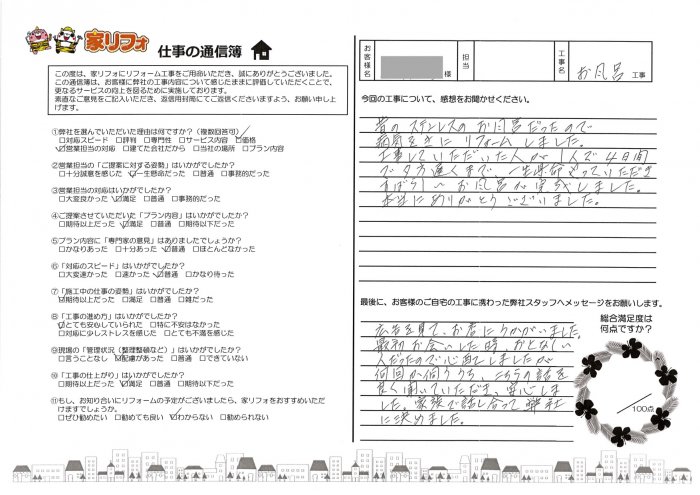 家リフォ 仕事の通信簿
この度は、家リフォにリフォーム工事をご用命いただき、誠にありがとうございました。
この通信簿は、お客様に弊社の工事内容について感じたままに評価していただくことで、
更なるサービスの向上を図るために実施しております。
素直なご意見をご記入いただき、返信用封筒にてご返信くださいますよう、お願い申し上
げます。
①弊社を選んでいただいた理由は何ですか?(複数回答可)
□対応スピード □評判 □専門性 □サービス内容 ☑価格
☑営業担当の対応 □建てた会社だから □当社の場所 □プラン内容
②営業担当の「ご提案に対する姿勢」はいかがでしたか?
□十分誠意を感じた ☑一生懸命だった □普通 □事務的だった
③営業担当の対応はいかがでしたか?
□大変良かった ☑満足 □普通 □事務的だった
④ご提案させていただいた「プラン内容」はいかがでしたか?
□期待以上だった ☑満足 □普通 □期待以下だった
⑤プラン内容に「専門家の意見」はありましたでしょうか?
□かなりあった □十分あった ☑普通 □ほとんどなかった
⑥「対応のスピード」はいかがでしたか?
□大変速かった □速かった ☑普通 □かなり待った
⑦「施工中の仕事の姿勢」はいかがでしたか?
☑期待以上だった □満足 □普通 □雑だった
⑧「工事の進め方」はいかがでしたか?
☑とても安心していられた □特に不安はなかった
□対応に少しストレスを感じた □とても不満を感じた
⑨現場の「管理状況(整理整頓など)」はいかがでしたか?
□言うことなし ☑配慮があった □普通 □できていない
⑩「工事の仕上がり」はいかがでしたか?
□期待以上だった ☑満足 □普通 □期待以下だった
⑪もし、お知り合いにリフォームの予定がございましたら、家リフォをおすすめいただ
けますでしょうか。
□ぜひ勧めたい □勧めても良い ☑わからない □勧められない
お客様名 様 担当 工事名 お風呂 工事
今回の工事について、感想をお聞かせください。
昔のステンレスのお風呂だったので
病気を機にリフォームしました。
工事していただいた人が1人で4日間
で夕方遅くまで一生懸命やっていただき
すばらしいお風呂が完成しました。
本当にありがとうございました。
最後に、お客様のご自宅の工事に携わった弊社スタッフへメッセージをお願いします。
広告を見て、お店にうかがいました。
最初お会いした時、おとなしい
人だったので心配しましたが
何回か伺ううち、こちらの話を
良く聞いていただき、安心しま
した。家族で話し合って弊社
に決めました。
総合満足度は
何点ですか?
/100点